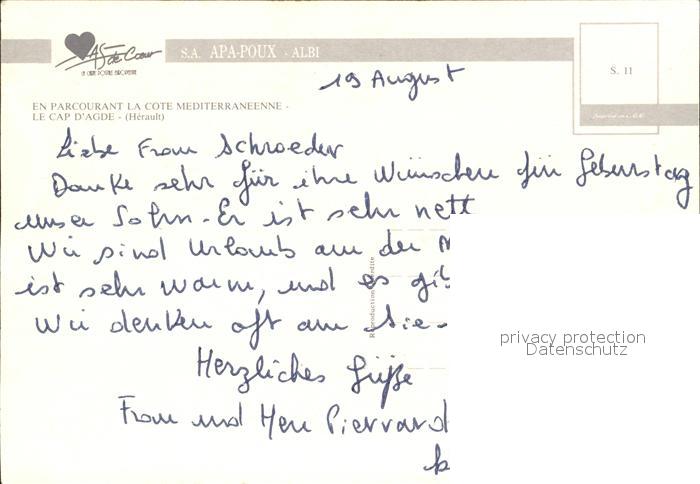 AS de Cœur
LA CARTE POSTALE EUROPEENNE
S.A. APA-POUX - ALBI
S. 11
19 August
EN PARCOURANT LA COTE MEDITERRANEENNE -
LE CAP D'AGDE - (Hérault)
Liebe Frau Schroeder
Danke sehr für ihre Wünschen für Geburstag
unser Sohn - Er ist sehr nett
Wir sind Urlaub an der M
ist sehr warm, und es gib
Wir denken oft an Sie -
Reproduction interdite
privacy protection
Datenschutz
Herzliches Grüße
Frau und Herr Pierrard